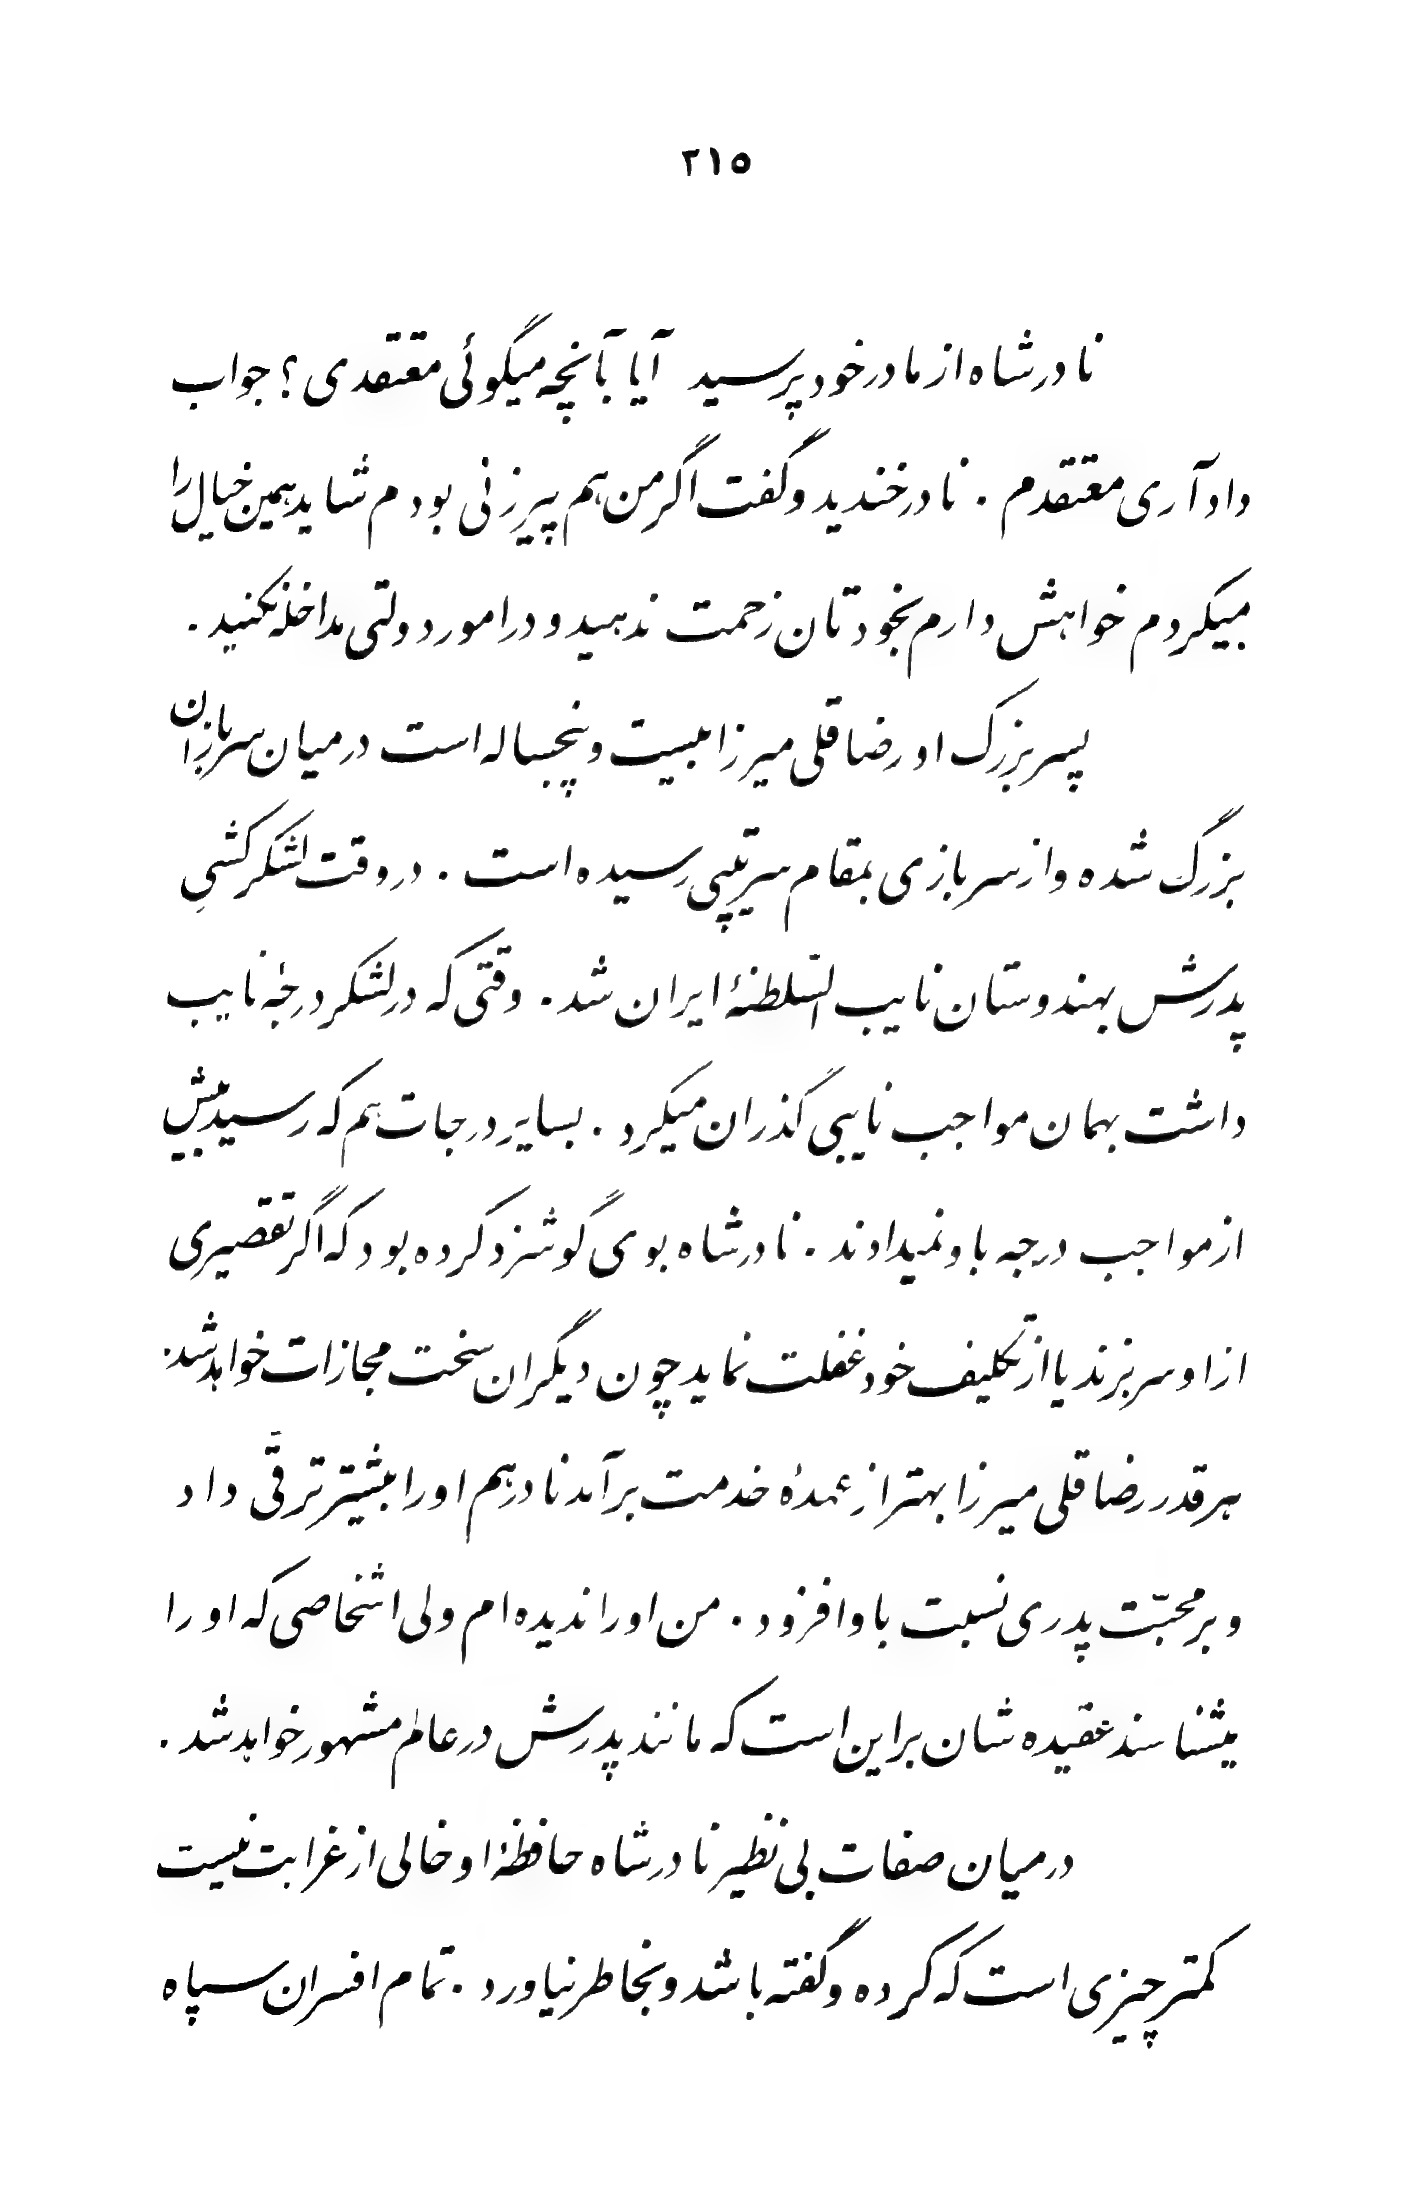 ۲۱۵
نادرشاه از مادر خود پرسید آیا بآنچه میگوئی معتقدی ؟ جواب
داد آری معتقدم . نادر خندید و گفت اگر من هم پیرزنی بودم شاید همین خیال را
میکردم خواهش دارم بخودتان زحمت ندهید و در امور دولتی مداخله نکنید .
پسر بزرگ او رضاقلی میرزا بیست و پنجساله است در میان سربازان
بزرگ شده و از سربازی بمقام سرتیپی رسیده است . در وقت لشکرکشی
پدرش بهندوستان نایب السّلطنهٔ ایران شد . وقتی که در لشکر درجهٔ نایب
داشت بهمان مواجب نایبی گذران میکرد . بسایر درجات هم که رسید بیش
از مواجب درجه باو نمیدادند . نادرشاه بوی گوشزد کرده بود که اگر تقصیری
از او سر بزند یا از تکلیف خود غفلت نماید چون دیگران سخت مجازات خواهد شد .
هر قدر رضاقلی میرزا بهتر از عهدهٔ خدمت برآمد نادر هم او را بیشتر ترقّی داد
و بر محبّت پدری نسبت باو افزود . من او را ندیده ام ولی اشخاصی که او را
میشناسند عقیده شان براین است که مانند پدرش در عالم مشهور خواهد شد .
در میان صفات بی نظیر نادرشاه حافظهٔ او خالی از غرابت نیست
کمتر چیزی است که کرده و گفته باشد و بخاطر نیاورد . تمام افسران سپاه